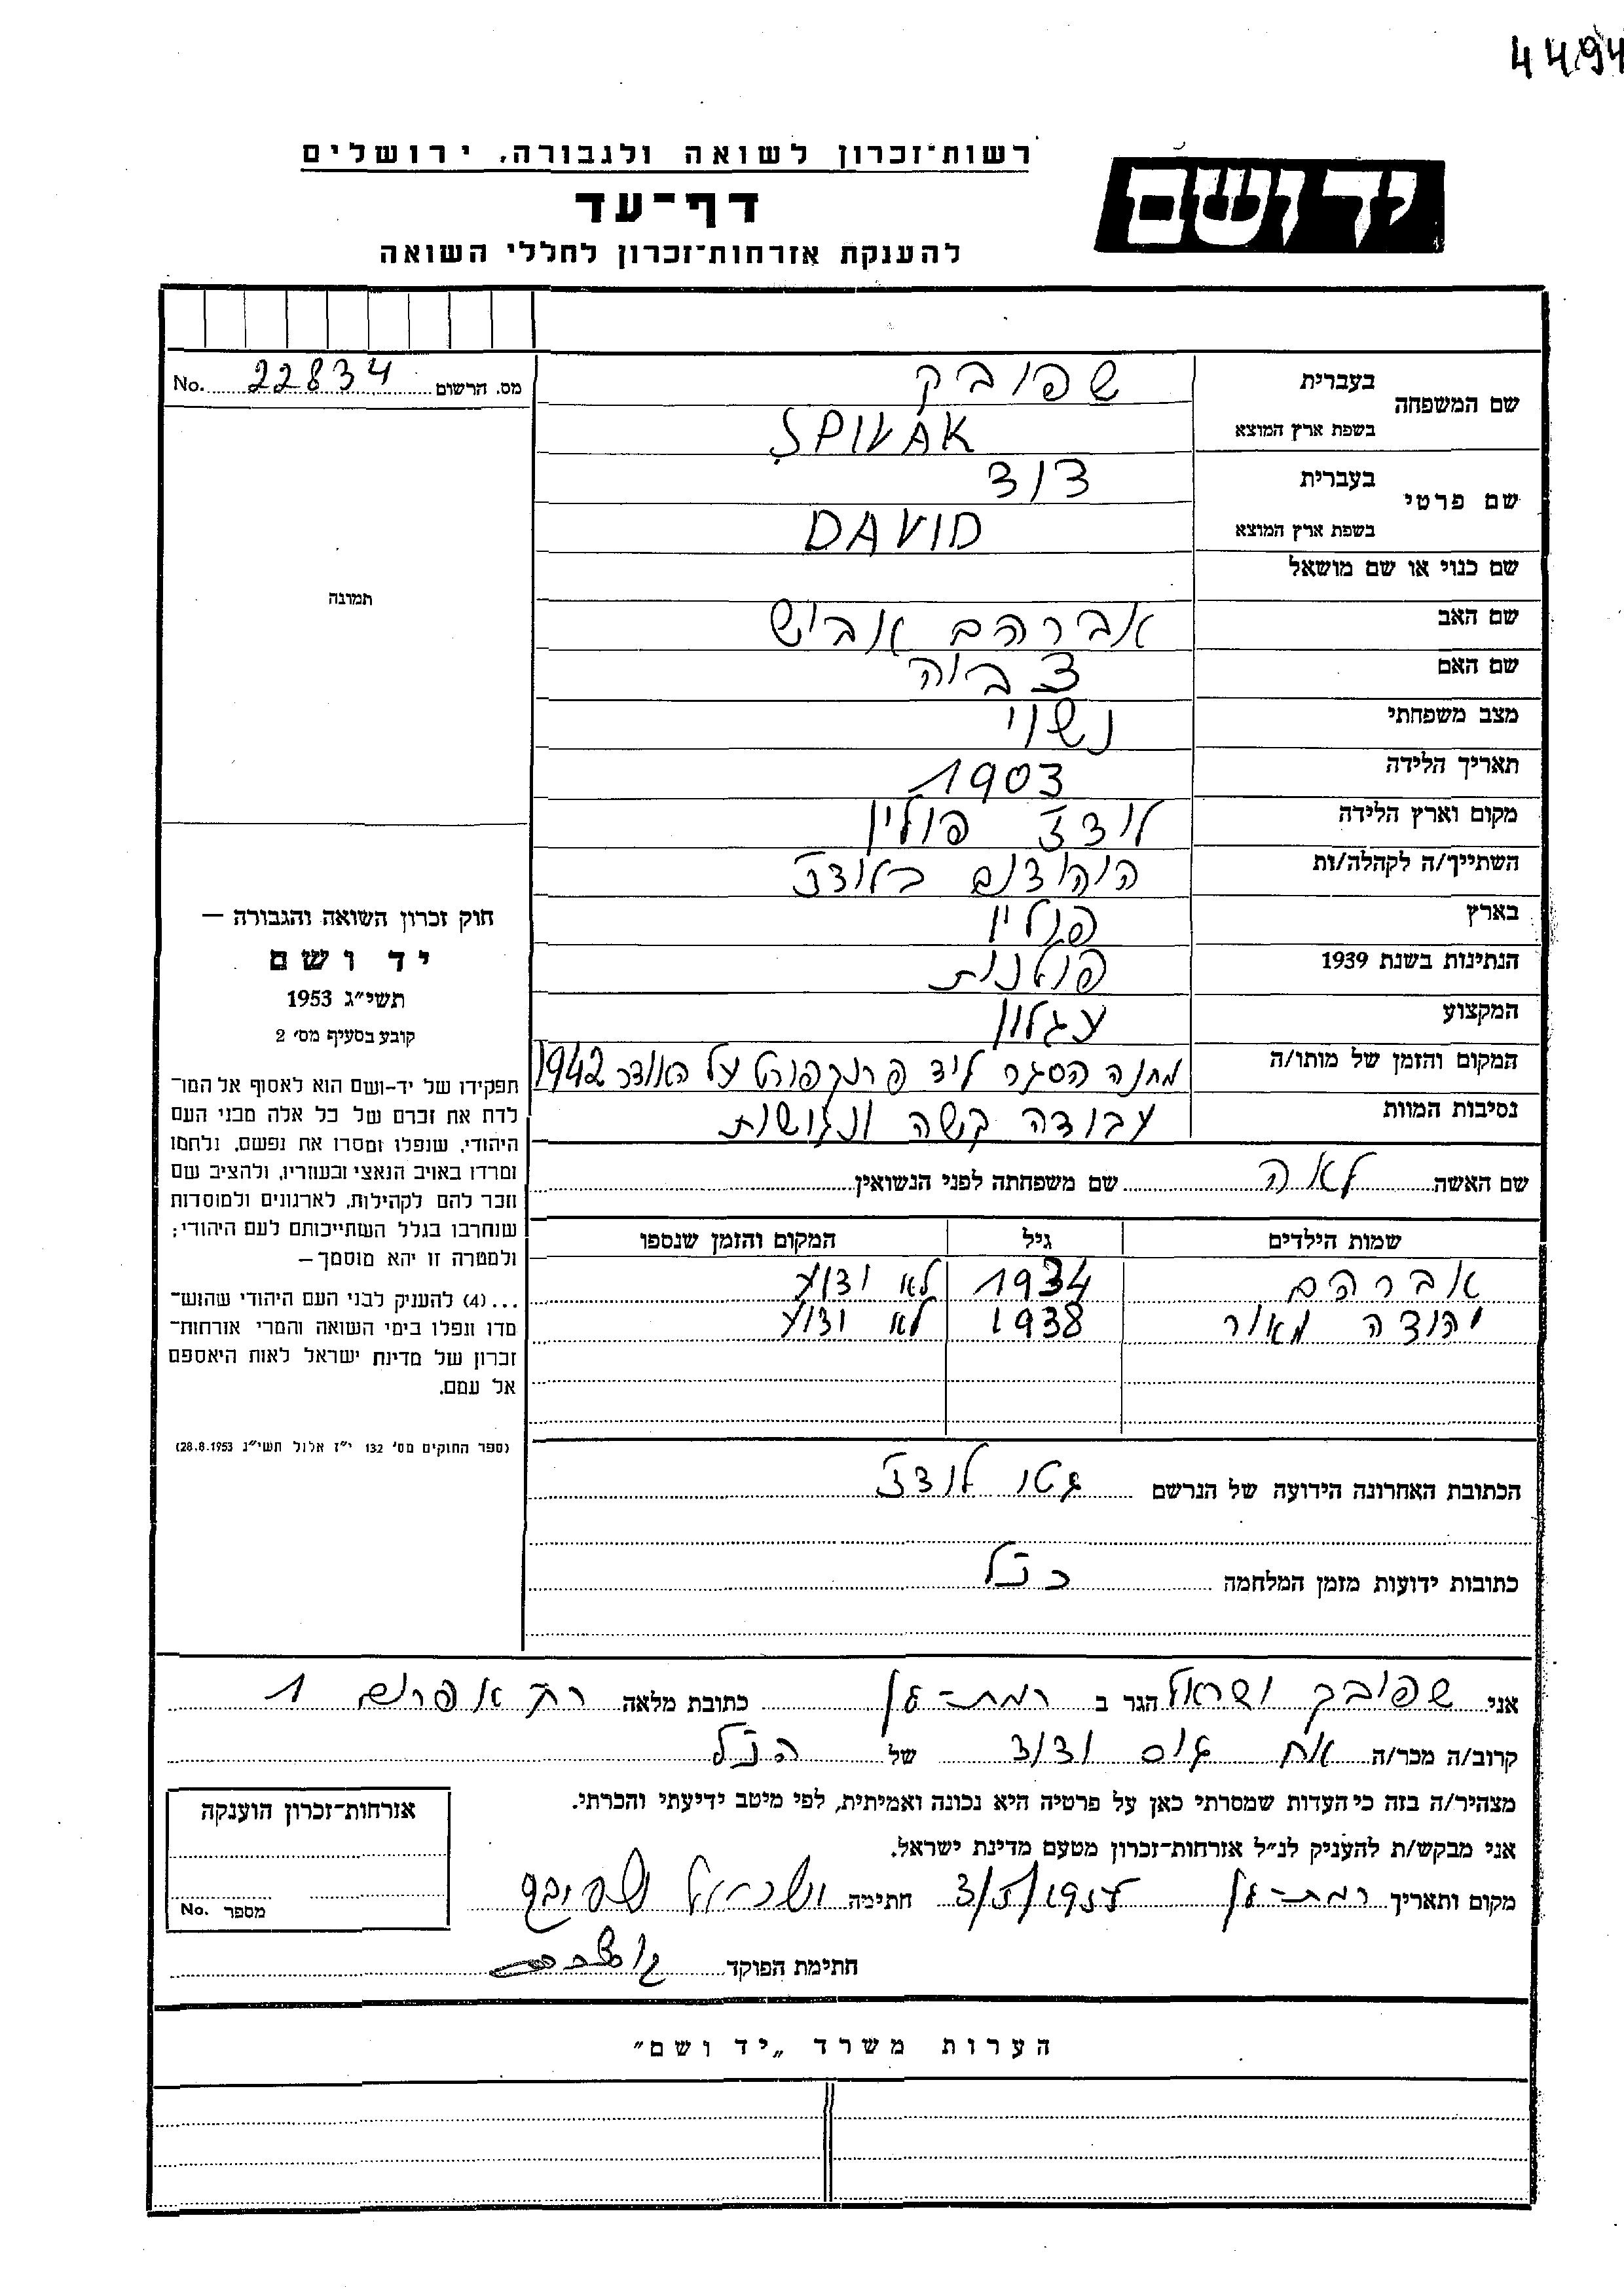 4494
רשות־זכרון לשואה ולגבורה, ירושלים
יד ושם
דף־עד
להענקת אזרחות־זכרון לחללי השואה
מס. הרשום 22834 No.
שם המשפחה בעברית שפיבק
בשפת ארץ המוצא SPIVAK
שם פרטי בעברית דוד
בשפת ארץ המוצא DAVID
שם כנוי או שם מושאל
שם האב אברהם אביש
שם האם צביה
מצב משפחתי נשוי
תאריך הלידה 1903
מקום וארץ הלידה לודז' פולין
השתייך/ה לקהלה/ות היהודים בלודז'
בארץ פולין
הנתינות בשנת 1939 פולנית
המקצוע עגלון
המקום והזמן של מותו/ה מחנה הסגר ליד פרנקפורט על האודר 1942
נסיבות המוות עבודה קשה ונגישות
שם האשה לאה שם משפחתה לפני הנשואין
שמות הילדים גיל המקום והזמן שנספו
אברהם 1934 לא ידוע
יהודה מאיר 1938 לא ידוע
הכתובת האחרונה הידועה של הנרשם גטו לודז'
כתובות ידועות מזמן המלחמה כנ"ל
תמונה
חוק זכרון השואה והגבורה —
יד ושם
תשי״ג 1953
קובע בסעיף מס׳ 2
תפקידו של יד-ושם הוא לאסוף אל המו־
לדת את זכרם של כל אלה מבני העם
היהודי, שנפלו ומסרו את נפשם, נלחמו
ומרדו באויב הנאצי ובעוזריו, ולהציב שם
וזכר להם לקהילות, לארגונים ולמוסדות
שנחרבו בגלל השתייכותם לעם היהודי;
ולמטרה זו יהא מוסמך—
...(4) להעניק לבני העם היהודי שהוש־
מדו ונפלו בימי השואה והמרי אזרחות־
זכרון של מדינת ישראל לאות היאספם
אל עמם.
(ספר החוקים מס׳ 132 י״ז אלול תשי״ג 28.8.1953)
אני שפיבק ישראל הגר ב רמת-גן כתובת מלאה רח אפרים 1
קרוב/ה מכר/ה אח גיס ודוד של הנ"ל
מצהיר/ה בזה כי העדות שמסרתי כאן על פרטיה היא נכונה ואמיתית, לפי מיטב ידיעתי והכרתי.
אני מבקש/ת להעניק לנ״ל אזרחות־זכרון מטעם מדינת ישראל.
מקום ותאריך רמת-גן 3/5/1957 חתימה ישראל שפיבק
חתימת הפוקד
אזרחות־זכרון הוענקה
מספר No.
הערות משרד „יד ושם״